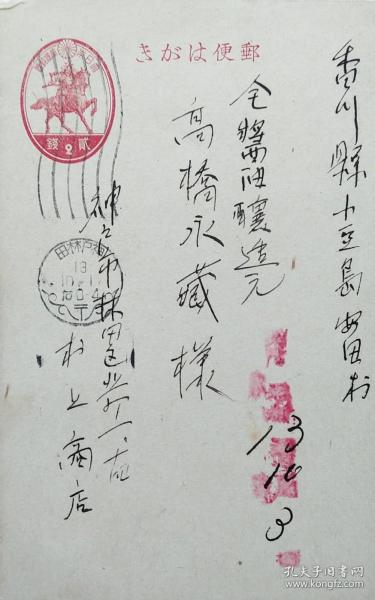 郵便はがき
貳 2 錢
香川縣小豆島安田村
仝醬油釀造元
高橋永藏様
神戸市林田區
村上商店
神戸林田
13
10.1
13
10
3
孔夫子旧书网
www.kongfz.com